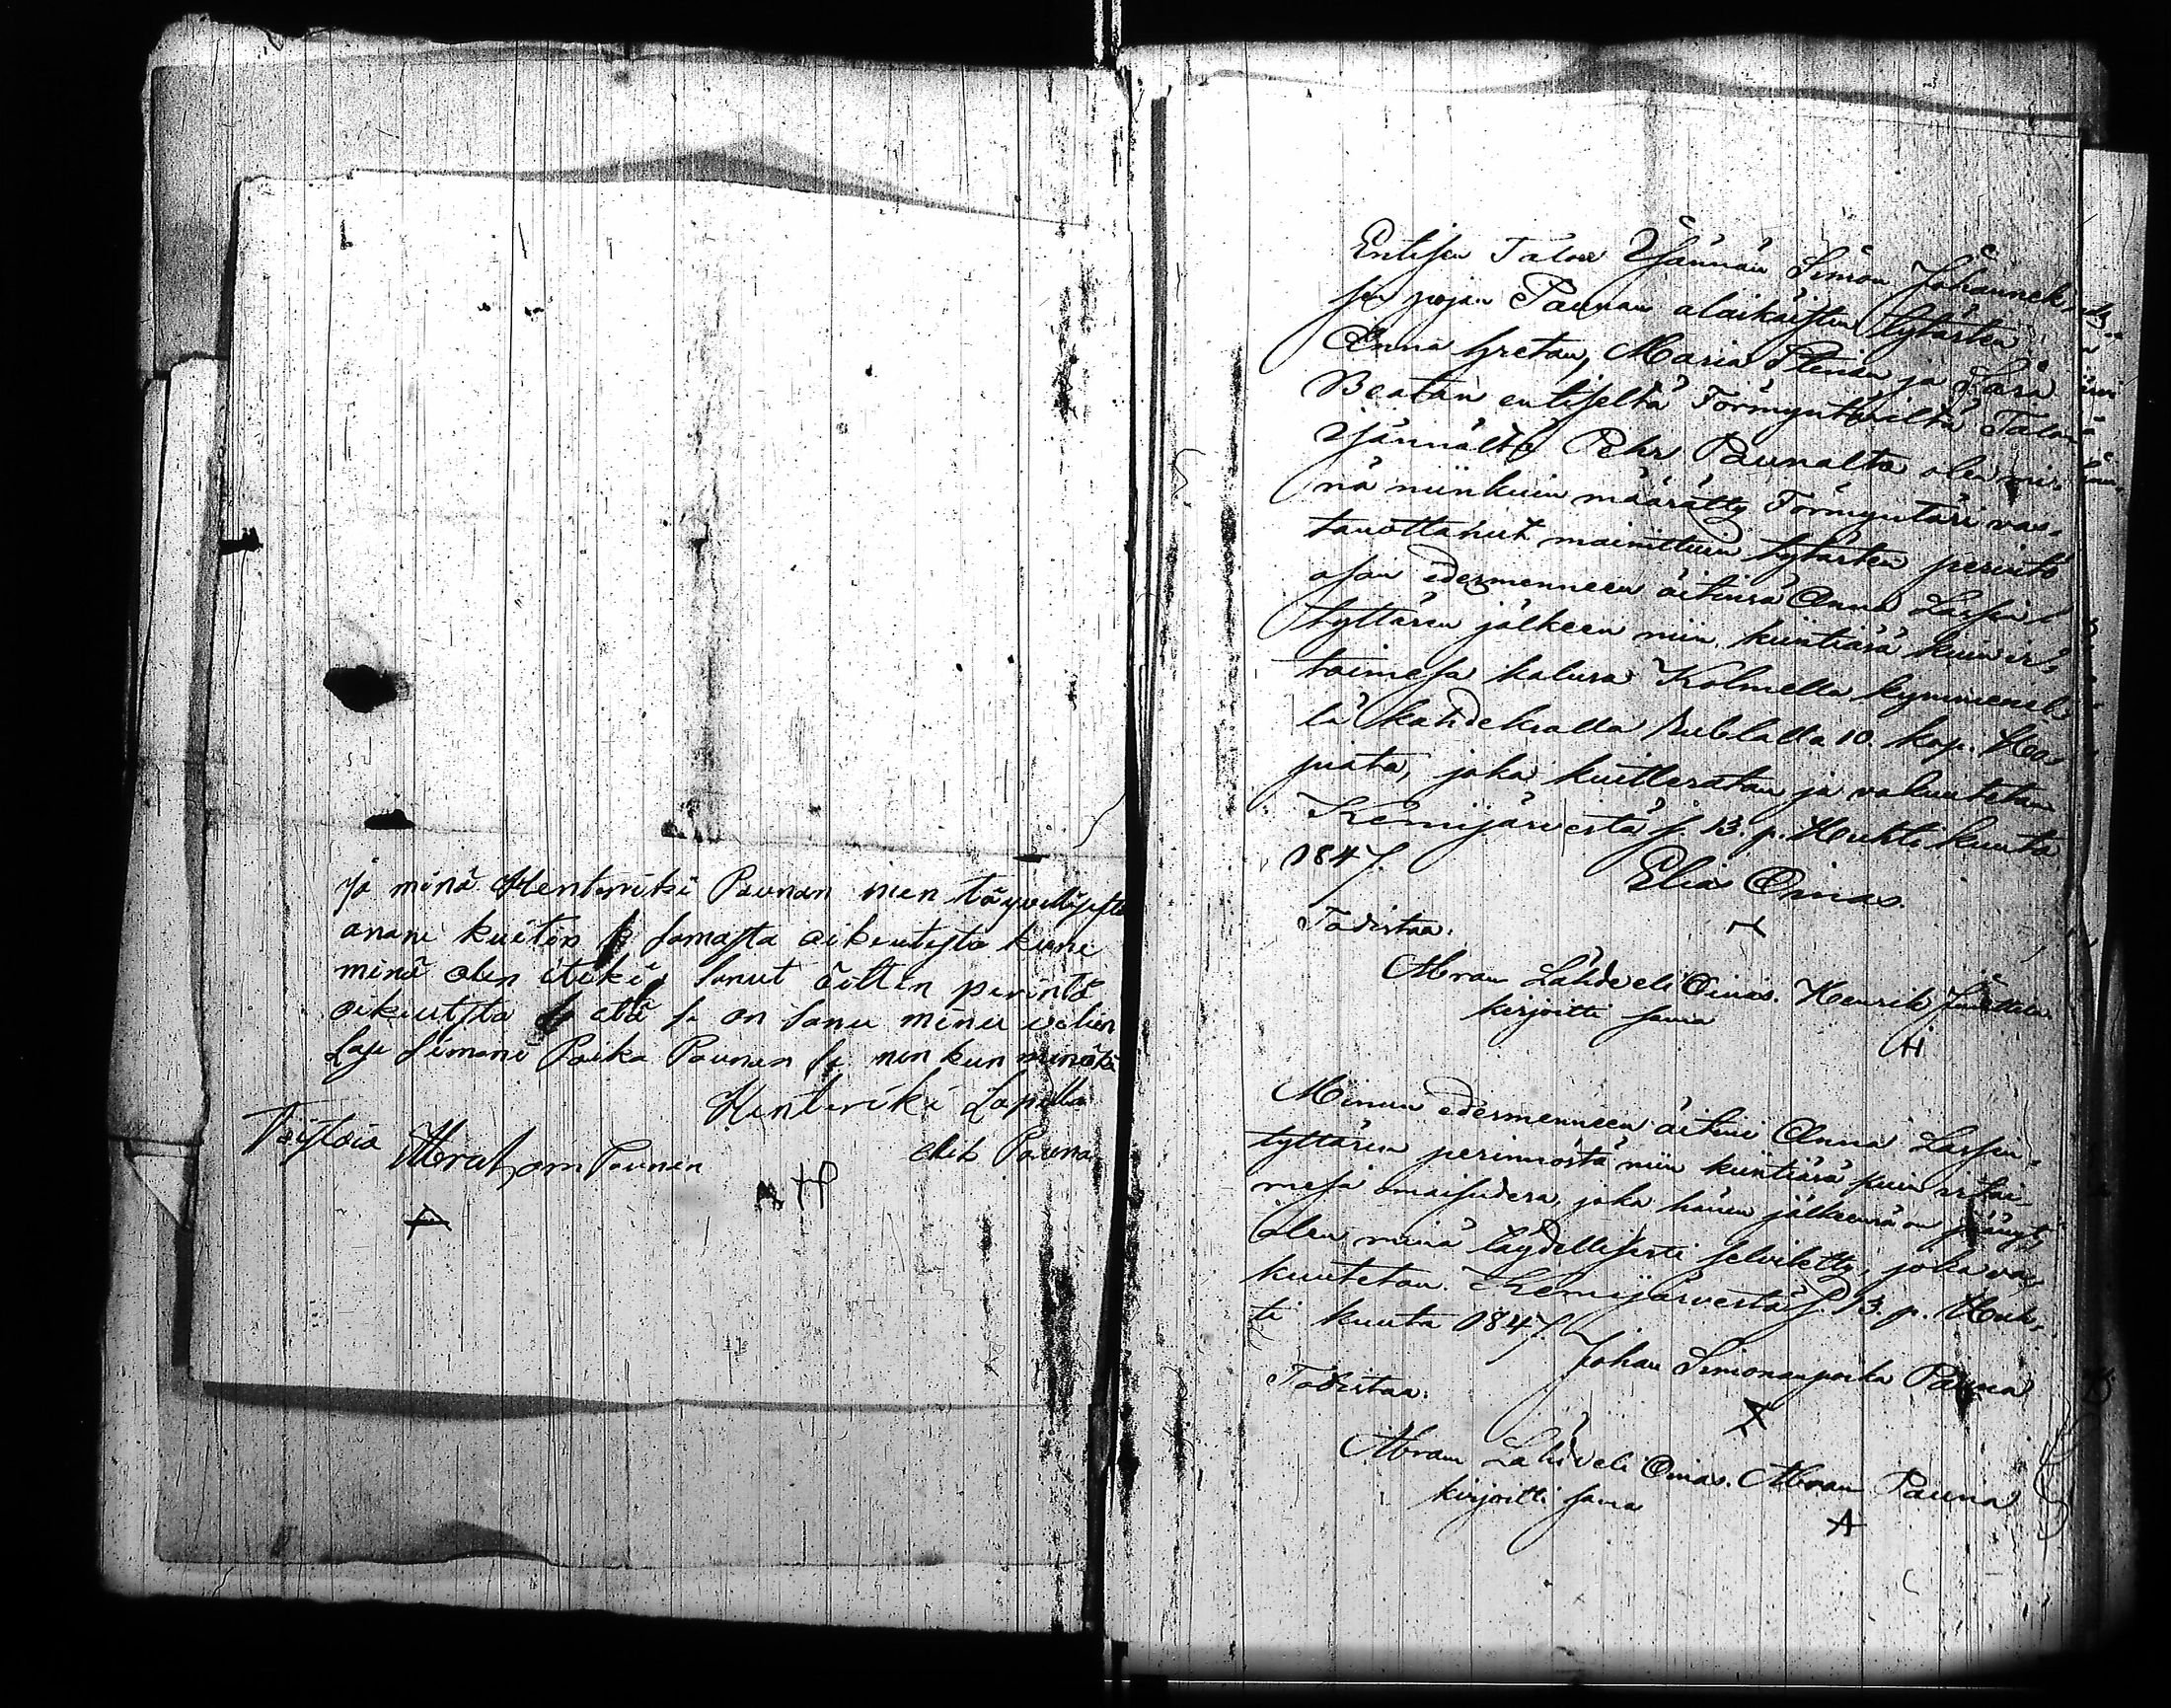 ja minä Henterikki Paunan nien täyvellisestä
anani kuiton samasta oikeutesta kuni
minä olen itseki sanut äiltin perintö
oikeutsta että se on sanu minu velien
Lassi Simoni Poika Paunan se nen kun minäki
Henteriki Lapella
elik Pauna
Toistaa Abraham Paunan
A HP
Entisen Talon Isännän Simon Johannek-
sen pojan Paunan alaikäisten tytärten
Anna Gretan, Maria Stinan ja Sara
Beatan entiseltä Förmyntäriltä Talon
Isännältä Pehr Paunalta olen mi-
nä niinkuin määrätty Förmyntäri vas-
tanottanut mainittuin tytärten perintö
osan edesmenneen äitinsä Anna Lassen
tyttären jälkeen niin kiintiässä kuin ir-
toimessa kalussa Kolmella kymmenel-
lä kahdeksalla Rublalla 10. kop. Ho-
piata, joka kuitteratan ja vakuutetan
Kemijärvestä s. 13. p. Huhti kuuta
1847.
Elias Oinas.
Todistaa.
Abram Lähdveli Oinas. Henrik
kirjoitti saman
H
Minun edesmenneen äitini Anna Lassen-
tyttären perinnöstä niin kiintiässä kuin irtai-
mesa omaisudesa, joka hänen jälkeensä on jäänyt,
olen minä täydellisesti selvitetty, joka va-
kuutetan. Kemijärvestä s. 13. p. Huh-
ti kuuta 1847.
Johan Simonanpoika Pauna
Todistaa.
Abram Lähdveli Oinas. Abram Pauna
kirjoitti saman
A